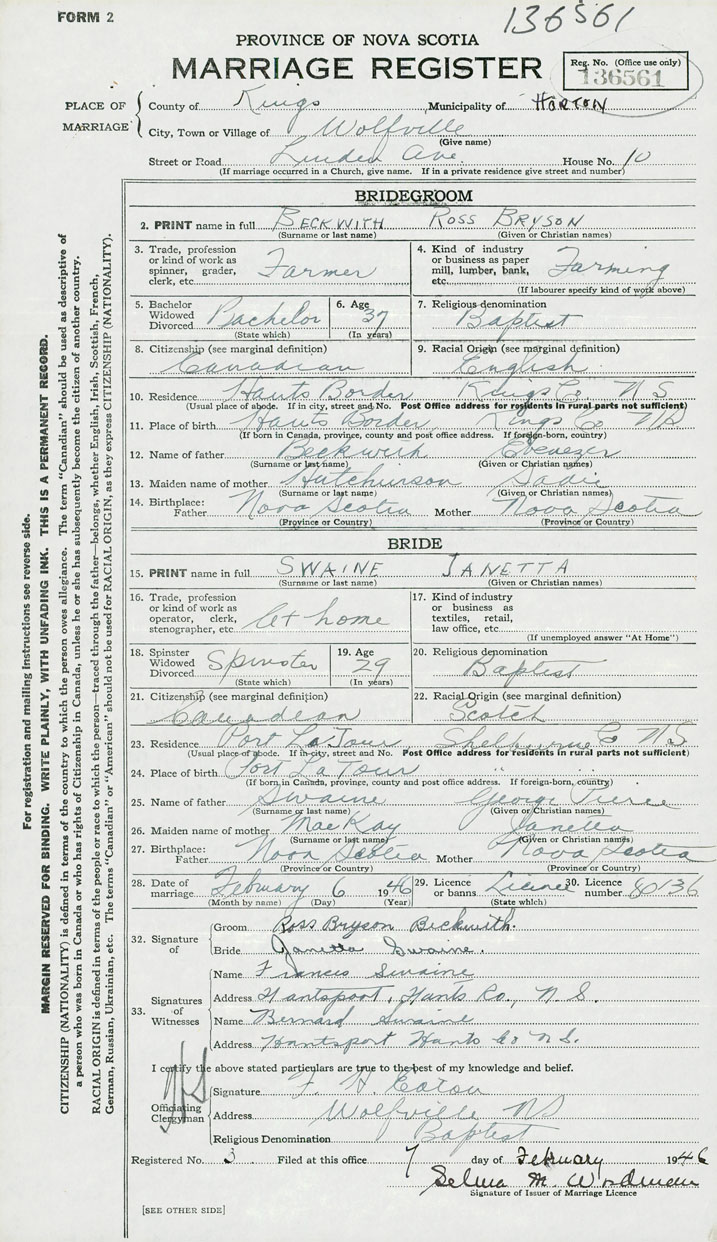 FORM 2
136561
PROVINCE OF NOVA SCOTIA
MARRIAGE REGISTER
Reg. No. (Office use only)
136561
PLACE OF MARRIAGE
County of Kings Municipality of HORTON
City, Town or Village of Wolfville
(Give name)
Street or Road Linden Ave. House No. 10
(If marriage occurred in a Church, give name. If in a private residence give street and number)
BRIDEGROOM
2. PRINT name in full BECKWITH ROSS BRYSON
(Surname or last name) (Given or Christian names)
3. Trade, profession or kind of work as spinner, grader, clerk, etc. Farmer
4. Kind of industry or business as paper mill, lumber, bank, etc. Farming
(If labourer specify kind of work above)
5. Bachelor Widowed Divorced Bachelor
(State which)
6. Age 37
(In years)
7. Religious denomination
Baptist
8. Citizenship (see marginal definition)
Canadian
9. Racial Origin (see marginal definition)
English
10. Residence Hants Border Kings Co N S
(Usual place of abode. If in city, street and No. Post Office address for residents in rural parts not sufficient)
11. Place of birth Hants Border Kings Co NS
(If born in Canada, province, county and post office address. If foreign-born, country)
12. Name of father Beckwith Ebenezer
(Surname or last name) (Given or Christian names)
13. Maiden name of mother Hutchinson Sadie
(Surname or last name) (Given or Christian names)
14. Birthplace: Father Nova Scotia Mother Nova Scotia
(Province or Country) (Province or Country)
BRIDE
15. PRINT name in full SWAINE JANETTA
(Surname or last name) (Given or Christian names)
16. Trade, profession or kind of work as operator, clerk, stenographer, etc. At home
17. Kind of industry or business as textiles, retail, law office, etc.
(If unemployed answer "At Home")
18. Spinster Widowed Divorced Spinster
(State which)
19. Age 29
(In years)
20. Religious denomination
Baptist
21. Citizenship (see marginal definition)
Canadean
22. Racial Origin (see marginal definition)
Scotch
23. Residence Port La Tour, Shelburne Co N S
(Usual place of abode. If in city, street and No. Post Office address for residents in rural parts not sufficient)
24. Place of birth Port La Tour " " "
(If born in Canada, province, county and post office address. If foreign-born, country)
25. Name of father Swaine George Pierce
(Surname or last name) (Given or Christian names)
26. Maiden name of mother MacKay Janetta
(Surname or last name) (Given or Christian names)
27. Birthplace: Father Nova Scotia Mother Nova Scotia
(Province or Country) (Province or Country)
28. Date of marriage February 6 1946
(Month by name) (Day) (Year)
29. Licence or banns Licence
(State which)
30. Licence number 80136
32. Signature of
Groom Ross Bryson Beckwith.
Bride Janetta Swaine.
33. Signatures of Witnesses
Name Frances Swaine
Address Hantsport, Hants Co., N. S.
Name Bernard Swaine
Address Hantsport Hants Co N S.
I certify the above stated particulars are true to the best of my knowledge and belief.
Officiating Clergyman
Signature F. H. Eaton
Address Wolfville NS
Religious Denomination Baptist
Registered No. 3 Filed at this office 7 day of February 1946
Selma M. Woodman
Signature of Issuer of Marriage Licence
[SEE OTHER SIDE]
For registration and mailing instructions see reverse side.
MARGIN RESERVED FOR BINDING. WRITE PLAINLY, WITH UNFADING INK. THIS IS A PERMANENT RECORD.
CITIZENSHIP (NATIONALITY) is defined in terms of the country to which the person owes allegiance. The term "Canadian" should be used as descriptive of
a person who was born in Canada or who has rights of Citizenship in Canada, unless he or she has subsequently become the citizen of another country.
RACIAL ORIGIN is defined in terms of the people or race to which the person—traced through the father—belongs, whether English, Irish, Scottish, French,
German, Russian, Ukrainian, etc. The terms "Canadian" or "American" should not be used for RACIAL ORIGIN, as they express CITIZENSHIP (NATIONALITY).